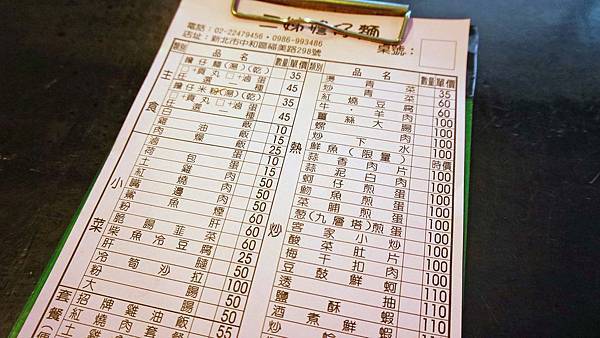 嫦擔仔麵
電話：02-22479456・0986-993486
店址：新北市中和區福美路298號
桌號：
類別 品名 數量 單價 類別 品名 數量 單價
主食
擔仔麵(湯)(乾) 35
任一 +貢丸□+滷蛋 選一種 45
擔仔米粉(湯)(乾) 35
任一 +貢丸□+滷蛋 選一種 45
白飯 10
雞油飯 15
小菜
滷蛋 10
荷包蛋 15
土雞肉
紅燒肉 50
嘴邊肉 50
鯊魚煙 50
粉肝 60
脆腸韭菜 60
柴魚冷豆腐 25
冷筍沙拉 50
粉腸 50
大腸 50
套餐
招牌雞油飯 50
紅燒肉套餐
土雞 55
熱炒
燙青菜 35
炒青菜 60
紅燒豆腐 60
牛・羊肉 100
薑絲大腸 100
螺肉 100
炒下水 100
鮮魚(限量) 時價
蒜香肉片 100
蒜泥白肉 100
蚵仔煎蛋 100
魩魚煎蛋 100
菜脯煎蛋 100
蔥(九層塔)煎蛋 100
客家小炒 100
酸菜肚片 100
梅干扣肉 100
豆鼓鮮蚵 100
透抽 110
鹽酥蝦 110
酒煮鮮蝦 110